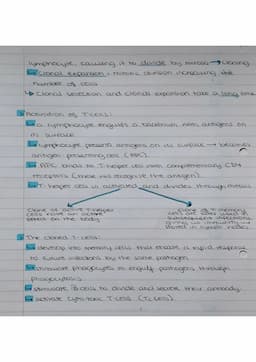 lymphocyte, causing it to divide by mitosis → cloning
Clonal expansion: mitotic division increasing the
number of cells
↳ Clonal selection and clonal expansion take a long time
Activation of T-cells:
a lymphocyte engulfs a bacterium with antigens on
its surface
lymphocyte presents antigens on its surface → becomes
antigen presenting cell (APC).
APC binds to T-helper cell with complementary CD4
receptors (these will recognise the antigen).
T-helper cell is activated and divides through mitosis
Clone of active T-helper
cells have an active
effect on the body
Clone of T-memory
cells are
immunity
stored in lymph nodes
The cloned T-cells:
develop into memory cells that enable a rapid response
to future infections by the same pathogen
stimulate phagocytes to engulf pathogens through
phagocytosis.
stimulate B cells to divide and secrete their antibody.
activate cytotoxic T-cells (Tc cells).